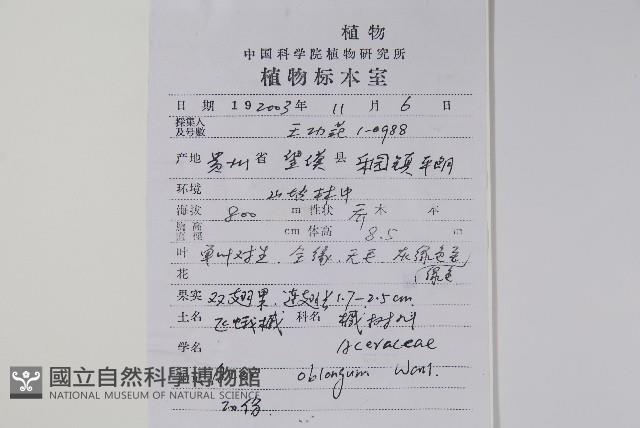 植物
中国科学院植物研究所
植物标本室
日期 19 2003 年 11 月 6 日
採集人
及号数 王功范 1-0988
产地 贵州 省 望谟 县 乐园镇
环境 山坡林中
海拔 800 m 性状 乔木
胸高
直徑 cm 体高 8.5 m
叶 单叶对生, 全缘, 无毛, 灰绿色
花 绿色
果实 双翅果, 连翅长1.7-2.5cm.
土名 飞蛾槭 科名 槭树科
学名 Aceraceae
oblongum Wall.
國立自然科學博物館
NATIONAL MUSEUM OF NATURAL SCIENCE